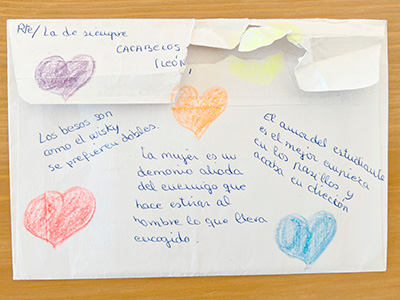 Rte/ La de siempre
CACABELOS
(LEÓN)
Los besos son
como el wisky
se prefieren dobles.
La mujer es un
demonio aliada
del enemigo que
hace estirar al
hombre lo que lleva
encogido.
El amor del estudiante
es el mejor empieza
en los pasillos y
acaba en dirección